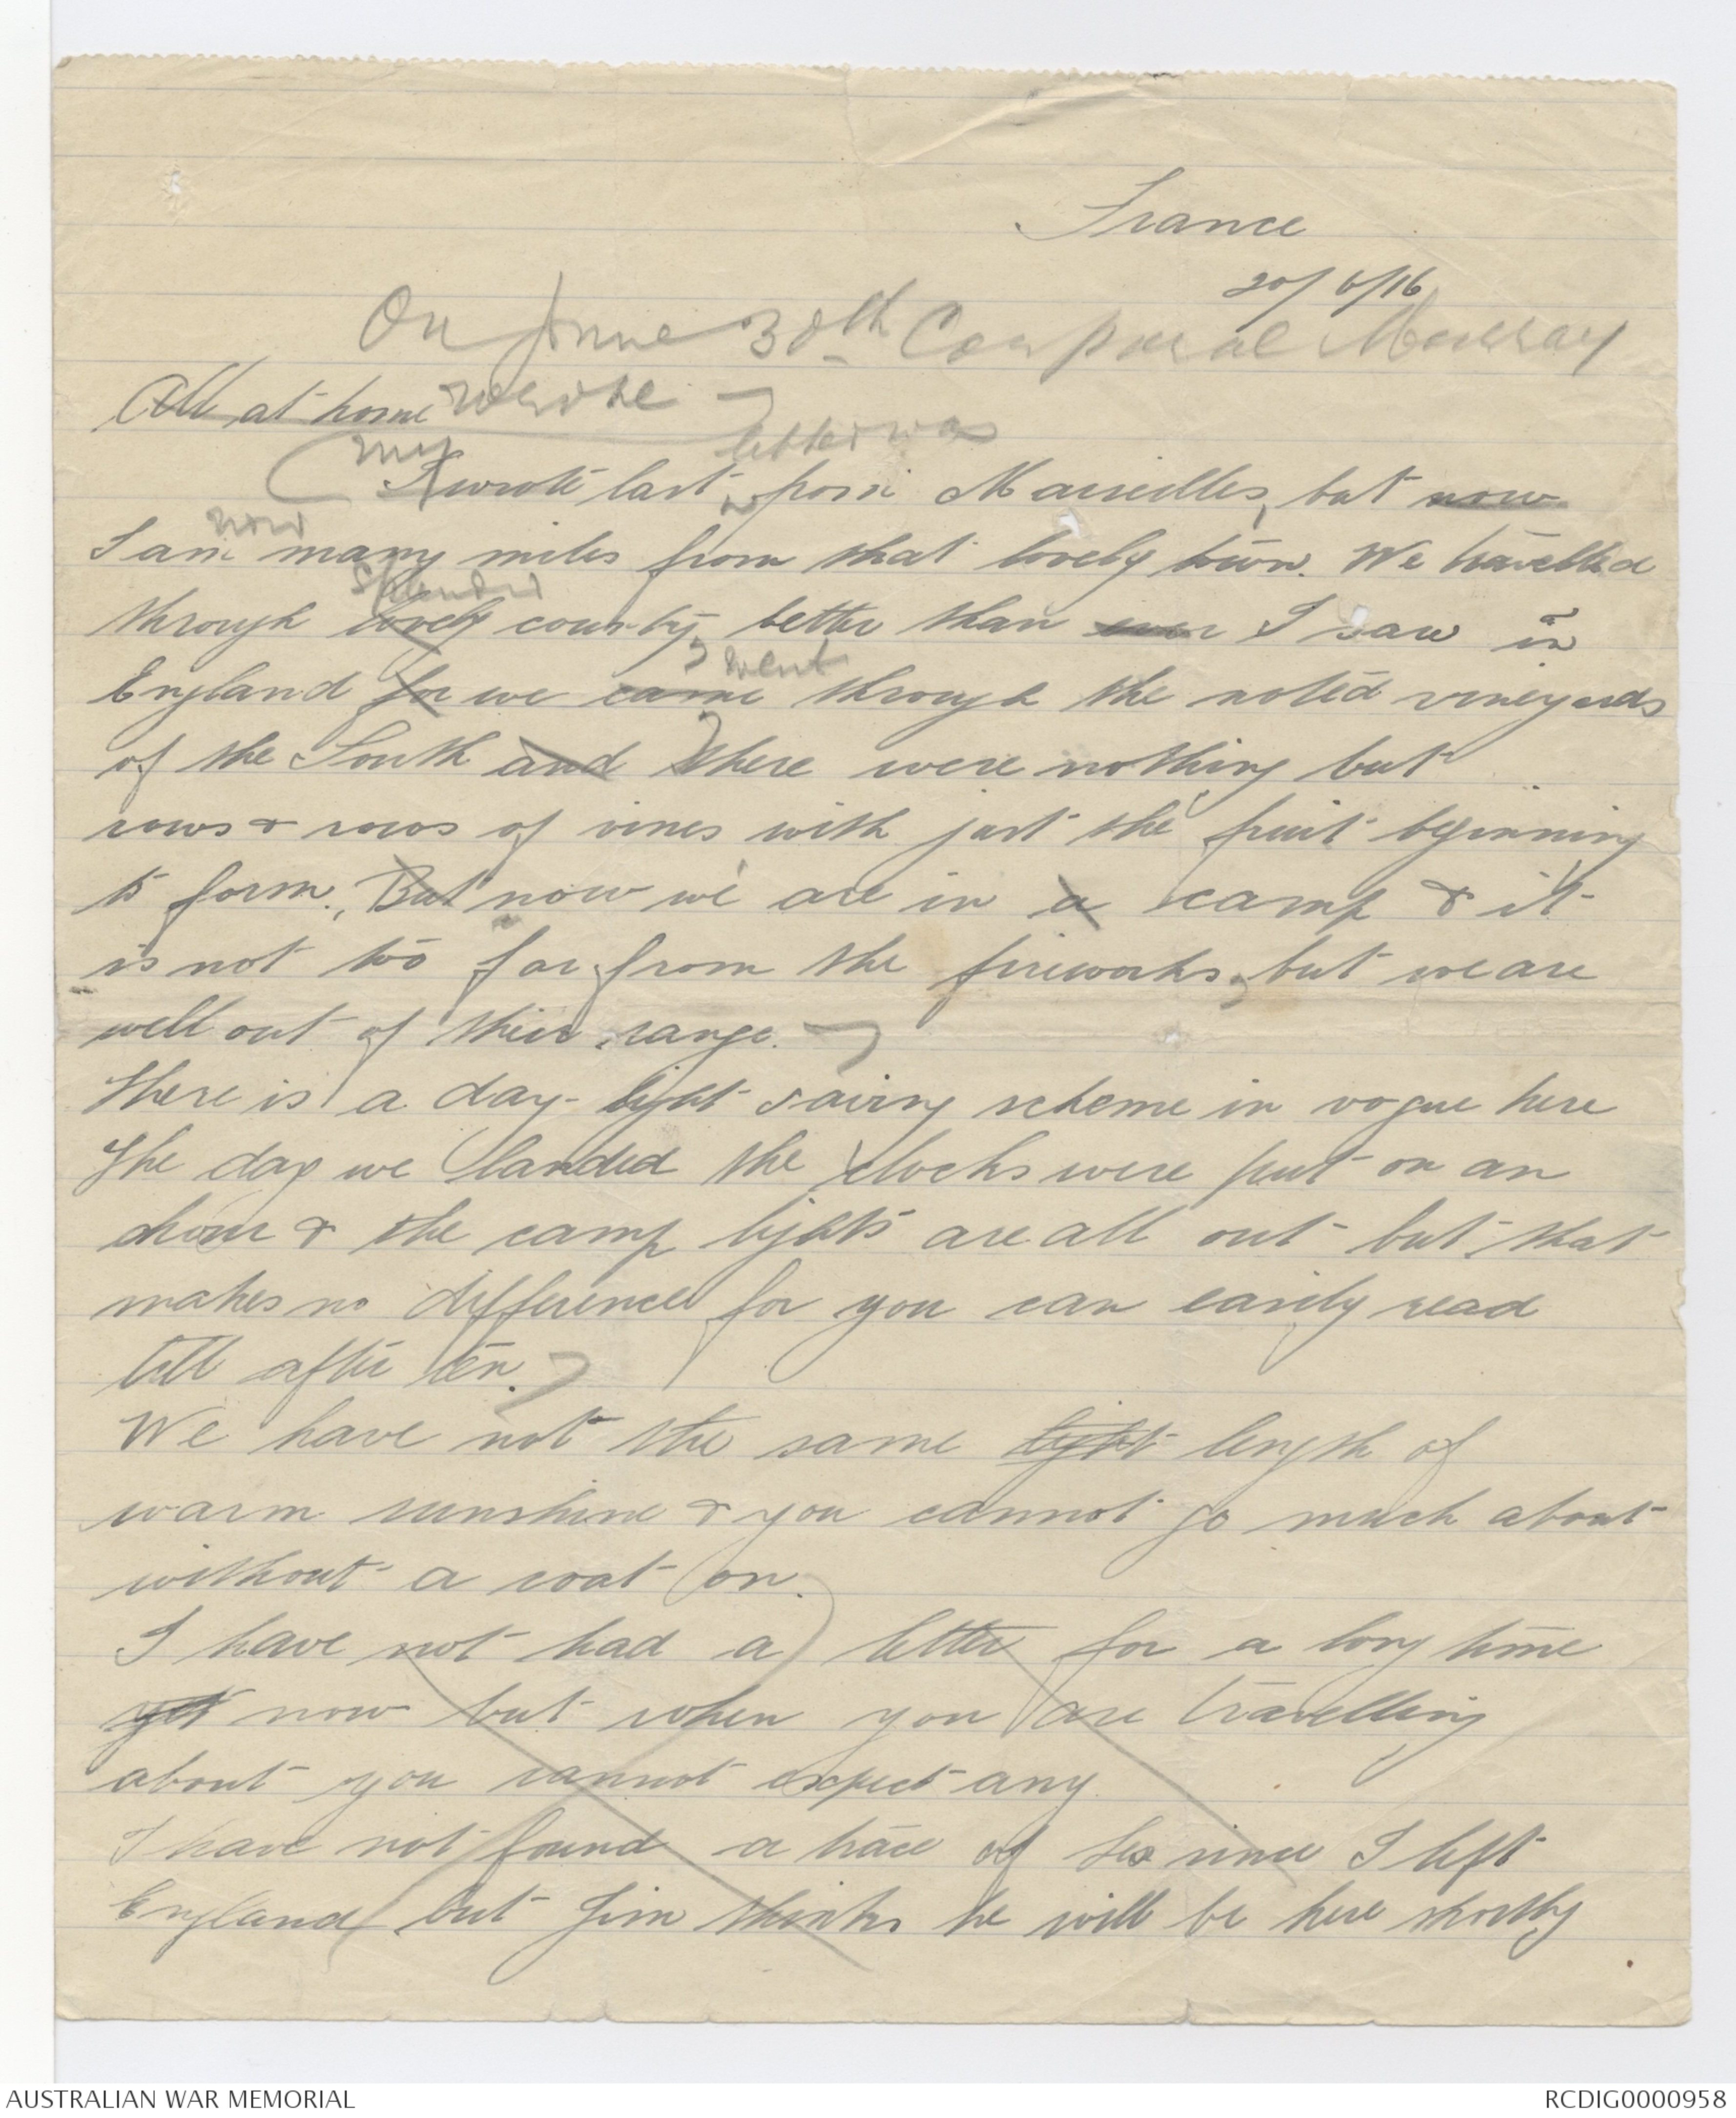 France
20/6/16
On June 30th Corporal Murray
All at home wrote -
my letter was
I wrote last from Marseilles, but now
now
I am many miles from that lovely town. We travelled
splendid
through lovely country, better than ever I saw in
went
England for we came through the noted vineyards
of the South and there were nothing but
rows & rows of vines with just the fruit beginning
to form. But now we are in a camp & it
is not too far from the fireworks, but we are
well out of their range.
There is a day-light saving scheme in vogue here
The day we landed the clocks were put on an
hour & the camp lights are all out but that
makes no difference for you can easily read
till after ten.
We have not the same light length of
warm sunshine & you cannot go much about
without a coat on.
I have not had a letter for a long time
yet now but when you are travelling
about you cannot expect any
I have not found a trace of Les since I left
England but Jim thinks he will be here shortly
AUSTRALIAN WAR MEMORIAL
RCDIG0000958